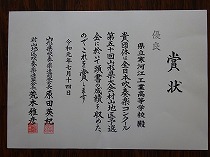 賞状
優良
県立寒河江工業高等学校 殿
貴団体は全日本吹奏楽コンクール
第五十回山形県大会村山地区予選
会に於て頭書の成績を収めた
のでこれを賞します
令和元年七月十四日
山形県吹奏楽連盟会長 原田英紀
村山地区吹奏楽連盟会長 荒木雅彦